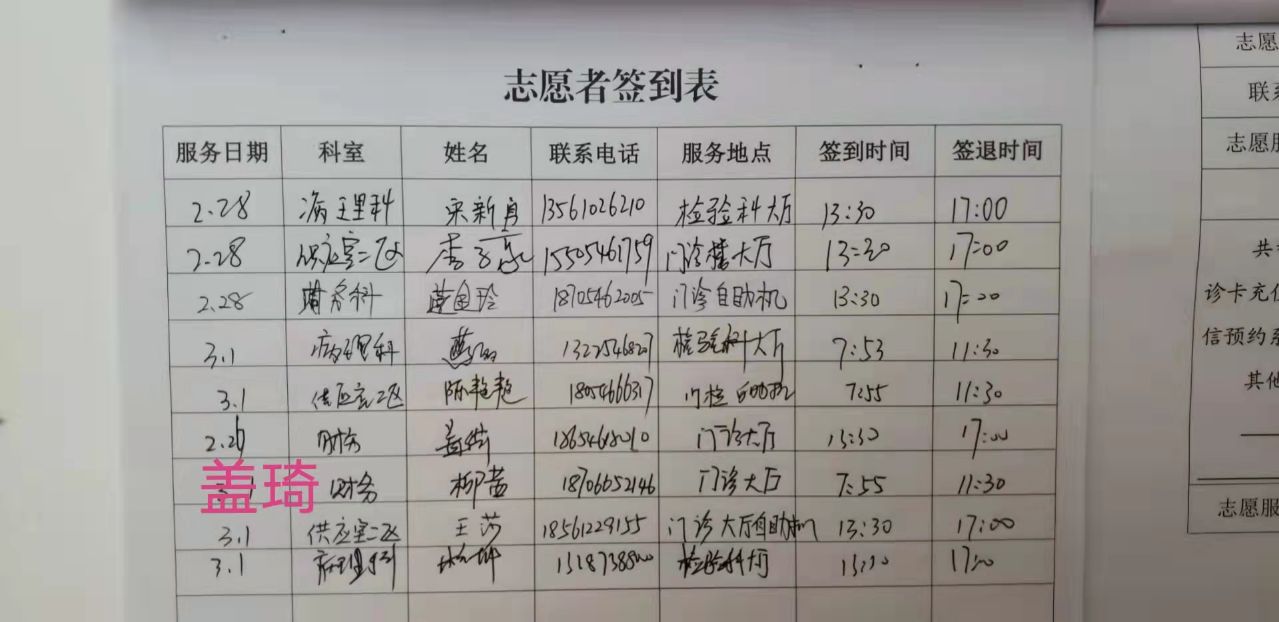 志愿者签到表
服务日期 科室 姓名 联系电话 服务地点 签到时间 签退时间
2.28 病理科 宋新 13561026210 检验科大厅 13:30 17:00
2.28 供应室二区 15505461759 门诊楼大厅 13:30 17:00
2.28 18705462005 门诊自助机 13:30 17:00
3.1 病理科 检验科大厅 7:53 11:30
3.1 供应室二区 陈艳艳 18054666317 门检自助机 7:55 11:30
财务 盖琦 门诊大厅 13:30 17:00
盖琦
财务 柳蕾 18706652146 门诊大厅 7:55 11:30
3.1 供应室二区 王莎 18561229155 门诊大厅自助机 13:30 17:00
3.1 病理科 检验科大厅
志愿
联系
志愿服
共
诊卡充值
信预约系
其他
志愿服